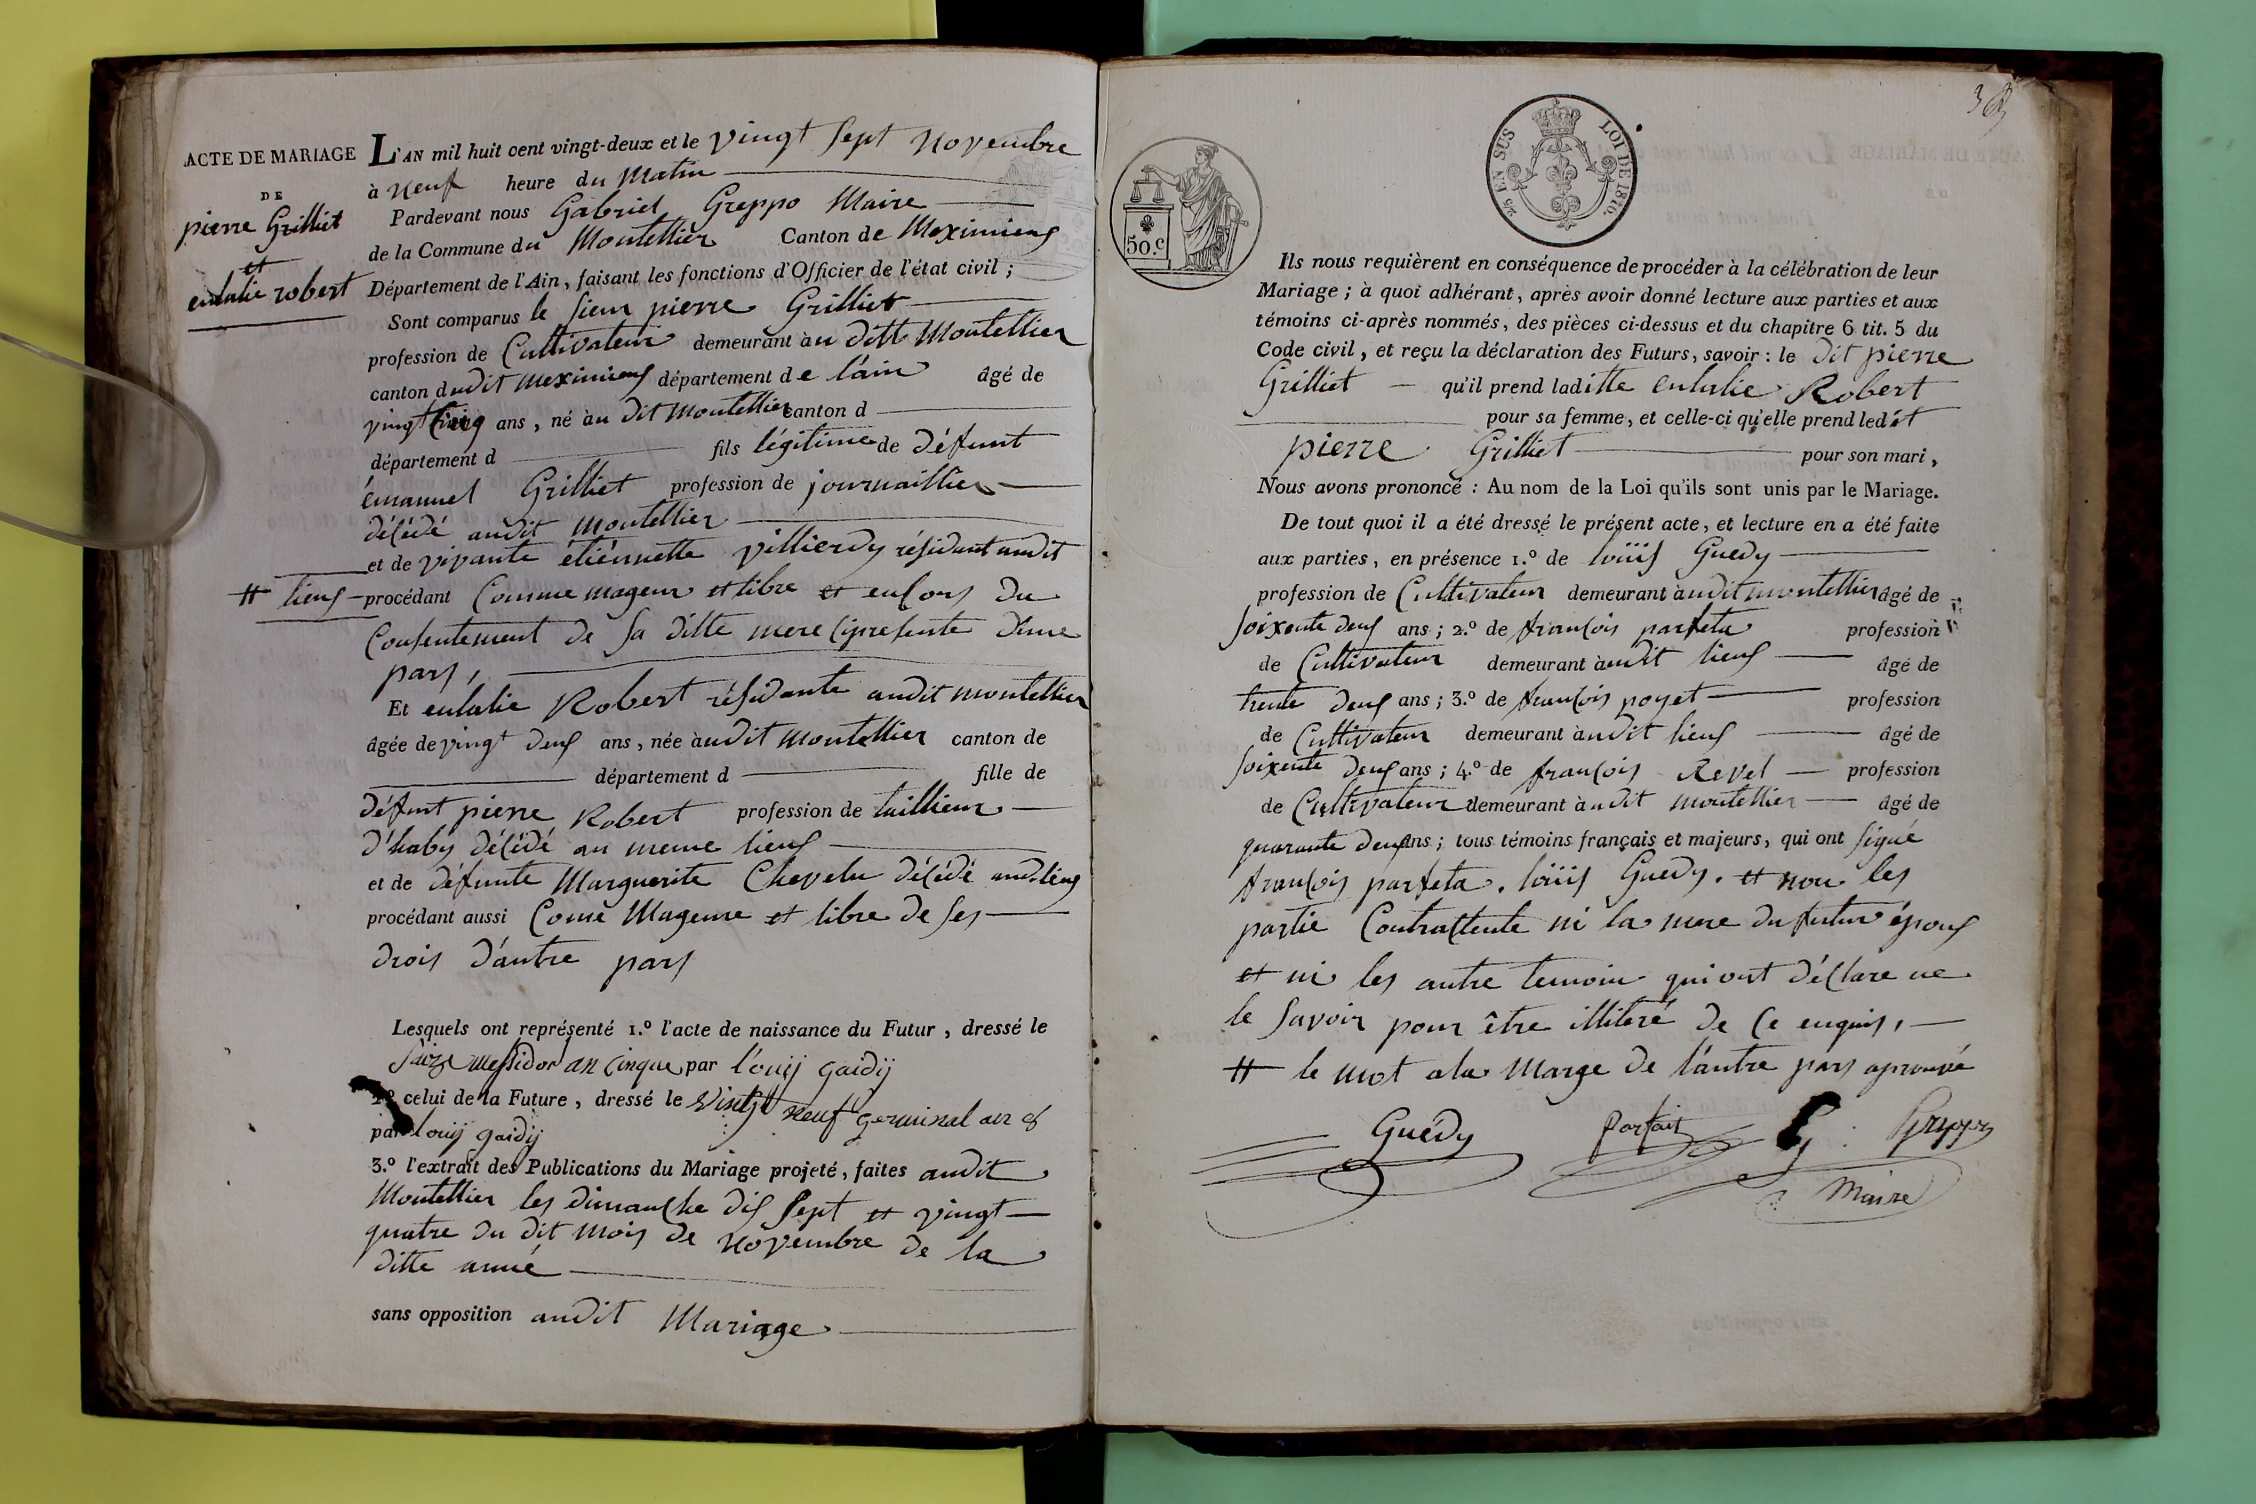 ACTE DE MARIAGE
DE
pierre Grilliet
et
eulalie robert
L'AN mil huit cent vingt-deux et le vingt sept novembre
à neuf heure du Matin
Pardevant nous Gabriel Greppo Maire
de la Commune du Montellier Canton de Meximieux
Département de l'Ain, faisant les fonctions d'Officier de l'état civil ;
Sont comparus le sieur pierre Grilliet
profession de Cultivateur demeurant au ditt Montellier
canton dudit meximieux département de l'ain âgé de
vingt cinq ans, né au dit Montellier canton d
département d fils légitime de défunt
émanuel Grilliet profession de journaillier
décédé audit Montellier
et de vivante étiénnette villierdy résidant audit
# lieux procédant Comme mageur et libre et en cors du
Consentement de sa ditte mere ci presente d'une
pars,
Et eulalie Robert résidante audit montellier
âgée de vingt deux ans, née audit Montellier canton de
département d fille de
défunt pierre Robert profession de taillieur
d'habis décédé au meme lieux
et de défunte Marguerite Chevelu décédé aud. lieux
procédant aussi Come Mageure et libre de ses
drois d'autre pars
Lesquels ont représenté 1.º l'acte de naissance du Futur, dressé le
seize messidor an cinque par l'ouij gaidij
2º celui de la Future, dressé le vingt neuf germinal an 8
par louij gaidij
3.º l'extrait des Publications du Mariage projeté, faites audit
Montellier les dimanche dis sept et vingt
quatre du dit mois de novembre de la
ditte anné
sans opposition audit Mariage
25 EN SUS
LOI DE 1816.
50.c
Ils nous requièrent en conséquence de procéder à la célébration de leur
Mariage ; à quoi adhérant, après avoir donné lecture aux parties et aux
témoins ci-après nommés, des pièces ci-dessus et du chapitre 6 tit. 5 du
Code civil, et reçu la déclaration des Futurs, savoir : le dit pierre
Grilliet qu'il prend laditte eulalie Robert
pour sa femme, et celle-ci qu'elle prend ledit
pierre Grilliet pour son mari,
Nous avons prononcé : Au nom de la Loi qu'ils sont unis par le Mariage.
De tout quoi il a été dressé le présent acte, et lecture en a été faite
aux parties, en présence 1.º de loüis Guedy
profession de Cultivateur demeurant audit montellier âgé de
soixente deux ans ; 2.º de francois parfeta profession
de Cultivateur demeurant audit lieux âgé de
trente deux ans ; 3.º de francois poyet profession
de Cultivateur demeurant audit lieux âgé de
soixente deux ans ; 4.º de francois Revel profession
de Cultivateur demeurant audit montellier âgé de
quarante deux ans ; tous témoins français et majeurs, qui ont signé
francois parfeta. loüis Guedy. et non les
partie Contractente ni la mere du futur épous
et ni les autre temoin qui ont déclare ne
le savoir pour être illiteré de ce enquis,
# le mot a la Marge de l'autre pars aprouvé
Guédy parfait Greppo
Maire